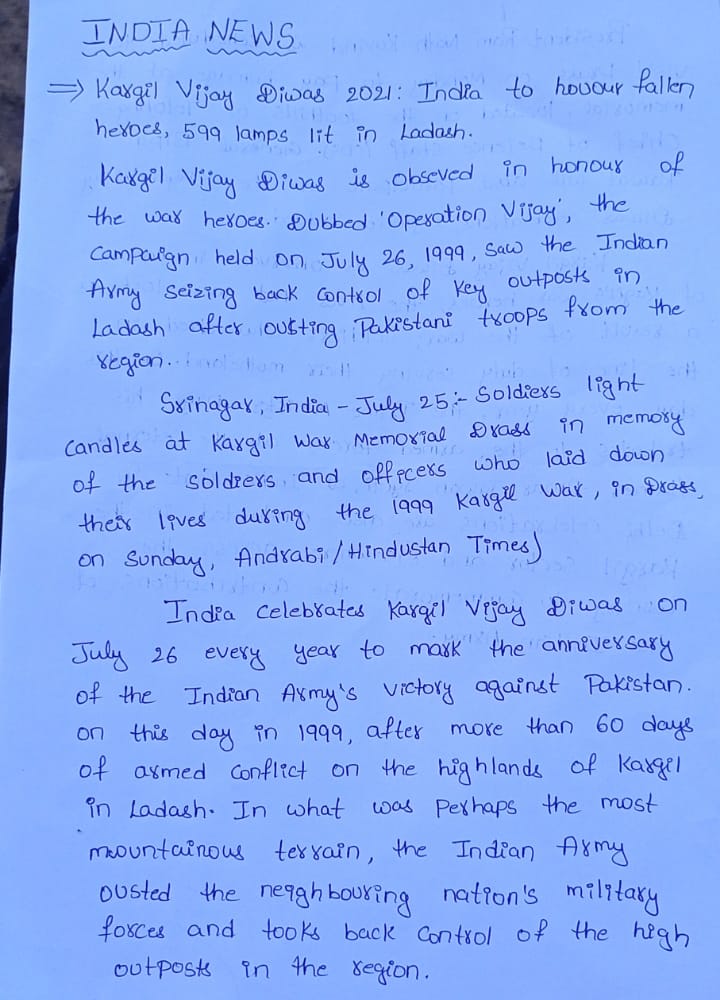 INDIA NEWS
⇒ Kargil Vijay Diwas 2021: India to hovour fallen
heroes, 599 lamps lit in Ladash.
Kargil Vijay Diwas is obseved in honour of
the war heroes. Dubbed 'Operation Vijay', the
campaign held on July 26, 1999, saw the Indian
Army seizing back control of key outposts in
Ladash after ousting Pakistani troops from the
region.
Srinagar, India - July 25:- Soldiers light
candles at Kargil War Memorial Drass in memory
of the soldiers and officers who laid down
their lives during the 1999 Kargil War, in Drass,
on Sunday, Andrabi/Hindustan Times)
India celebrates Kargil Vijay Diwas on
July 26 every year to mark the anniversary
of the Indian Army's victory against Pakistan.
on this day in 1999, after more than 60 days
of armed conflict on the highlands of Kargil
in Ladash. In what was perhaps the most
mountainous terrain, the Indian Army
ousted the neighbouring nation's military
forces and tooks back control of the high
outposts in the region.